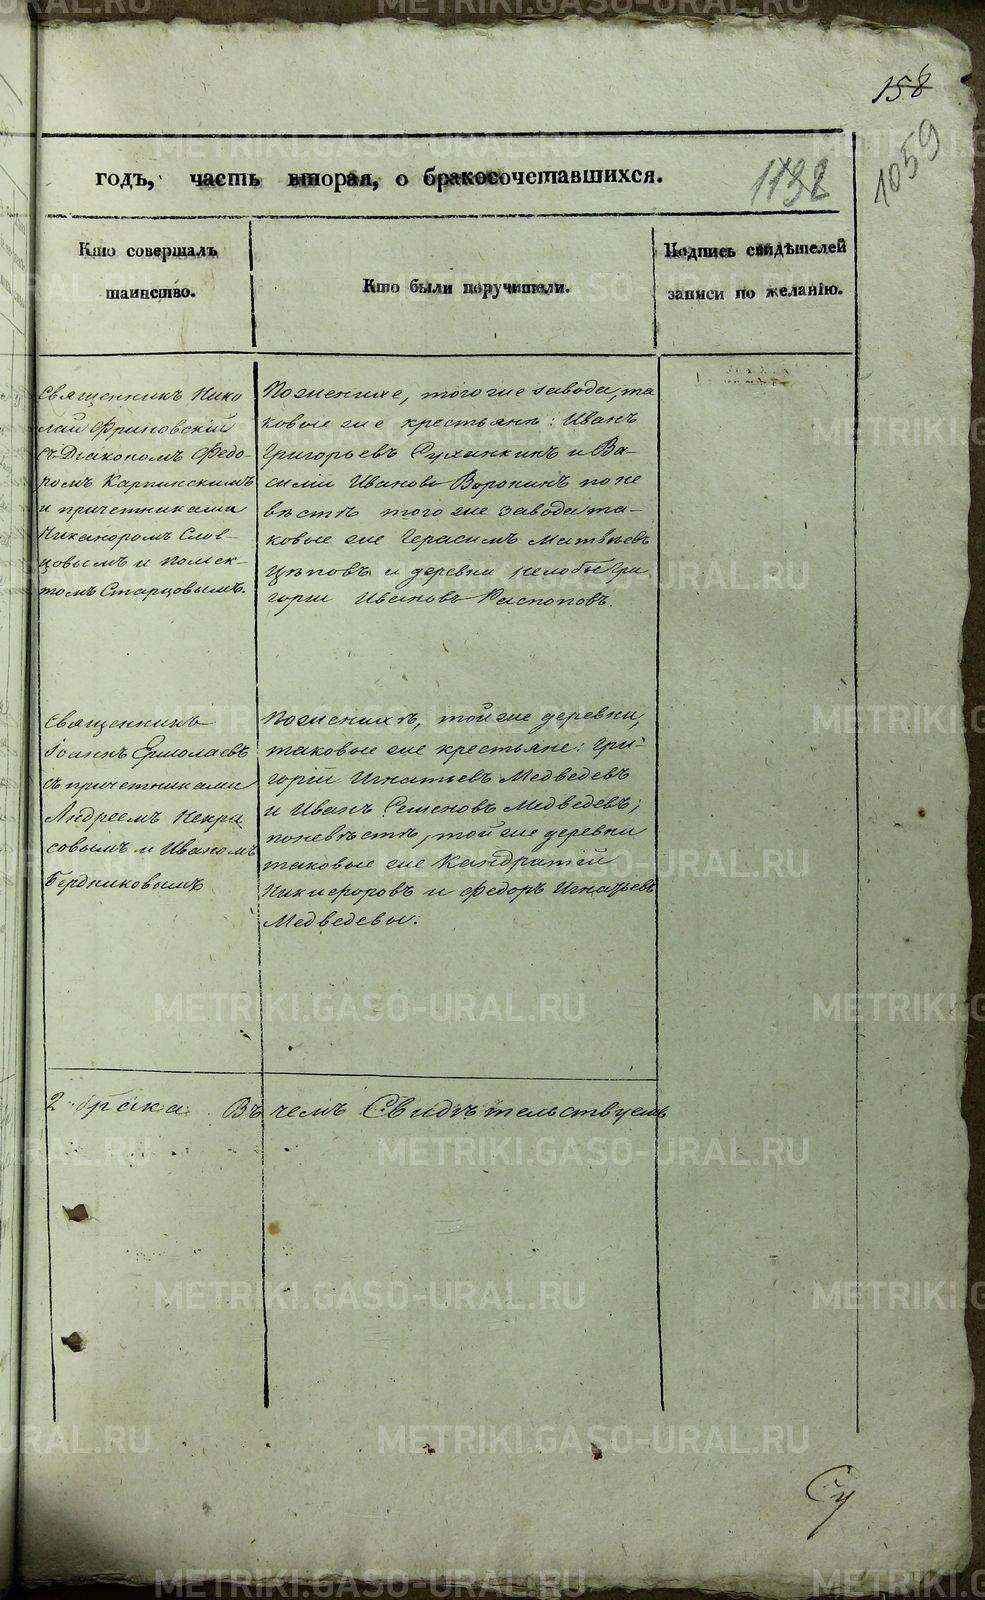 158
1059
1132
годъ, часть вторая, о бракосочетавшихся.
Кто совершалъ таинство.
Кто были поручители.
Подпись свидѣтелей записи по желанію.
Священникъ Нико
лай Фриновскій
съ Діакономъ Федо-
ромъ Карпинскимъ
и причетниками
Никаноромъ Слов-
цовымъ и
Старцовымъ.
Поженихе, того же завода, та
ковые же крестьяне: Иванъ
Григорьевъ Суханкинъ и Ва-
силіи Ивановъ Воронинъ по не
вѣстѣ того же завода та-
ковые же Герасимъ Матвѣевъ
Цѣповъ и деревни Гри
горіи Ивановъ Распоповъ.
Священникъ
Іоаннъ Ермолаевъ
съ причетниками
Андреемъ Некра
совымъ и Иваномъ
Бердниковымъ
Поженихѣ, той же деревни,
таковые же крестьяне: Гри-
горій Игнатьевъ Медведевъ
и Иванъ Семеновъ Медведевъ;
поневѣстѣ, той же деревни
таковые же Кандратій
Никифоровъ и Федоръ Игнатьевъ
Медведевы.
2 брака Въ чемъ Свидѣтельствуемъ
Су
METRIKI.GASO-URAL.RU